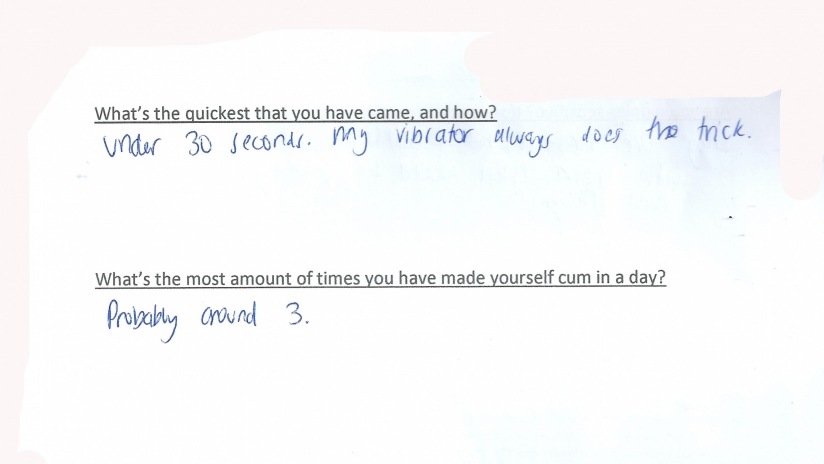 What's the quickest that you have came, and how?
Under 30 seconds. My vibrator always does the trick.
What's the most amount of times you have made yourself cum in a day?
Probably around 3.